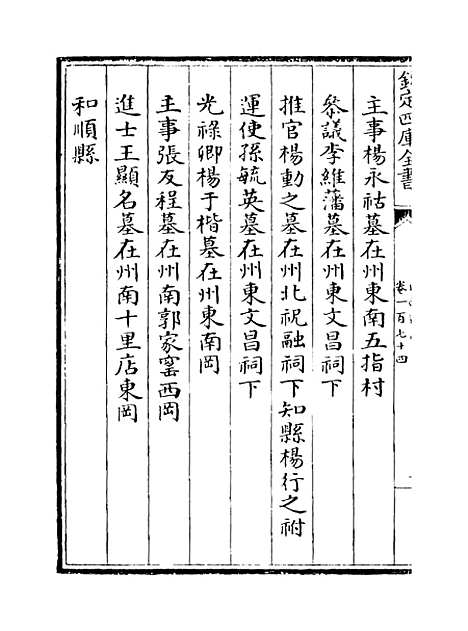 欽定四庫全書
卷一百七十四
主事楊永祜墓在州東南五指村
叅議李維藩墓在州東文昌祠下
推官楊動之墓在州北祝融祠下知縣楊行之祔
運使孫毓英墓在州東文昌祠下
光祿卿楊于楷墓在州東南岡
主事張友程墓在州南郭家窰西岡
進士王顯名墓在州南十里店東岡
和順縣